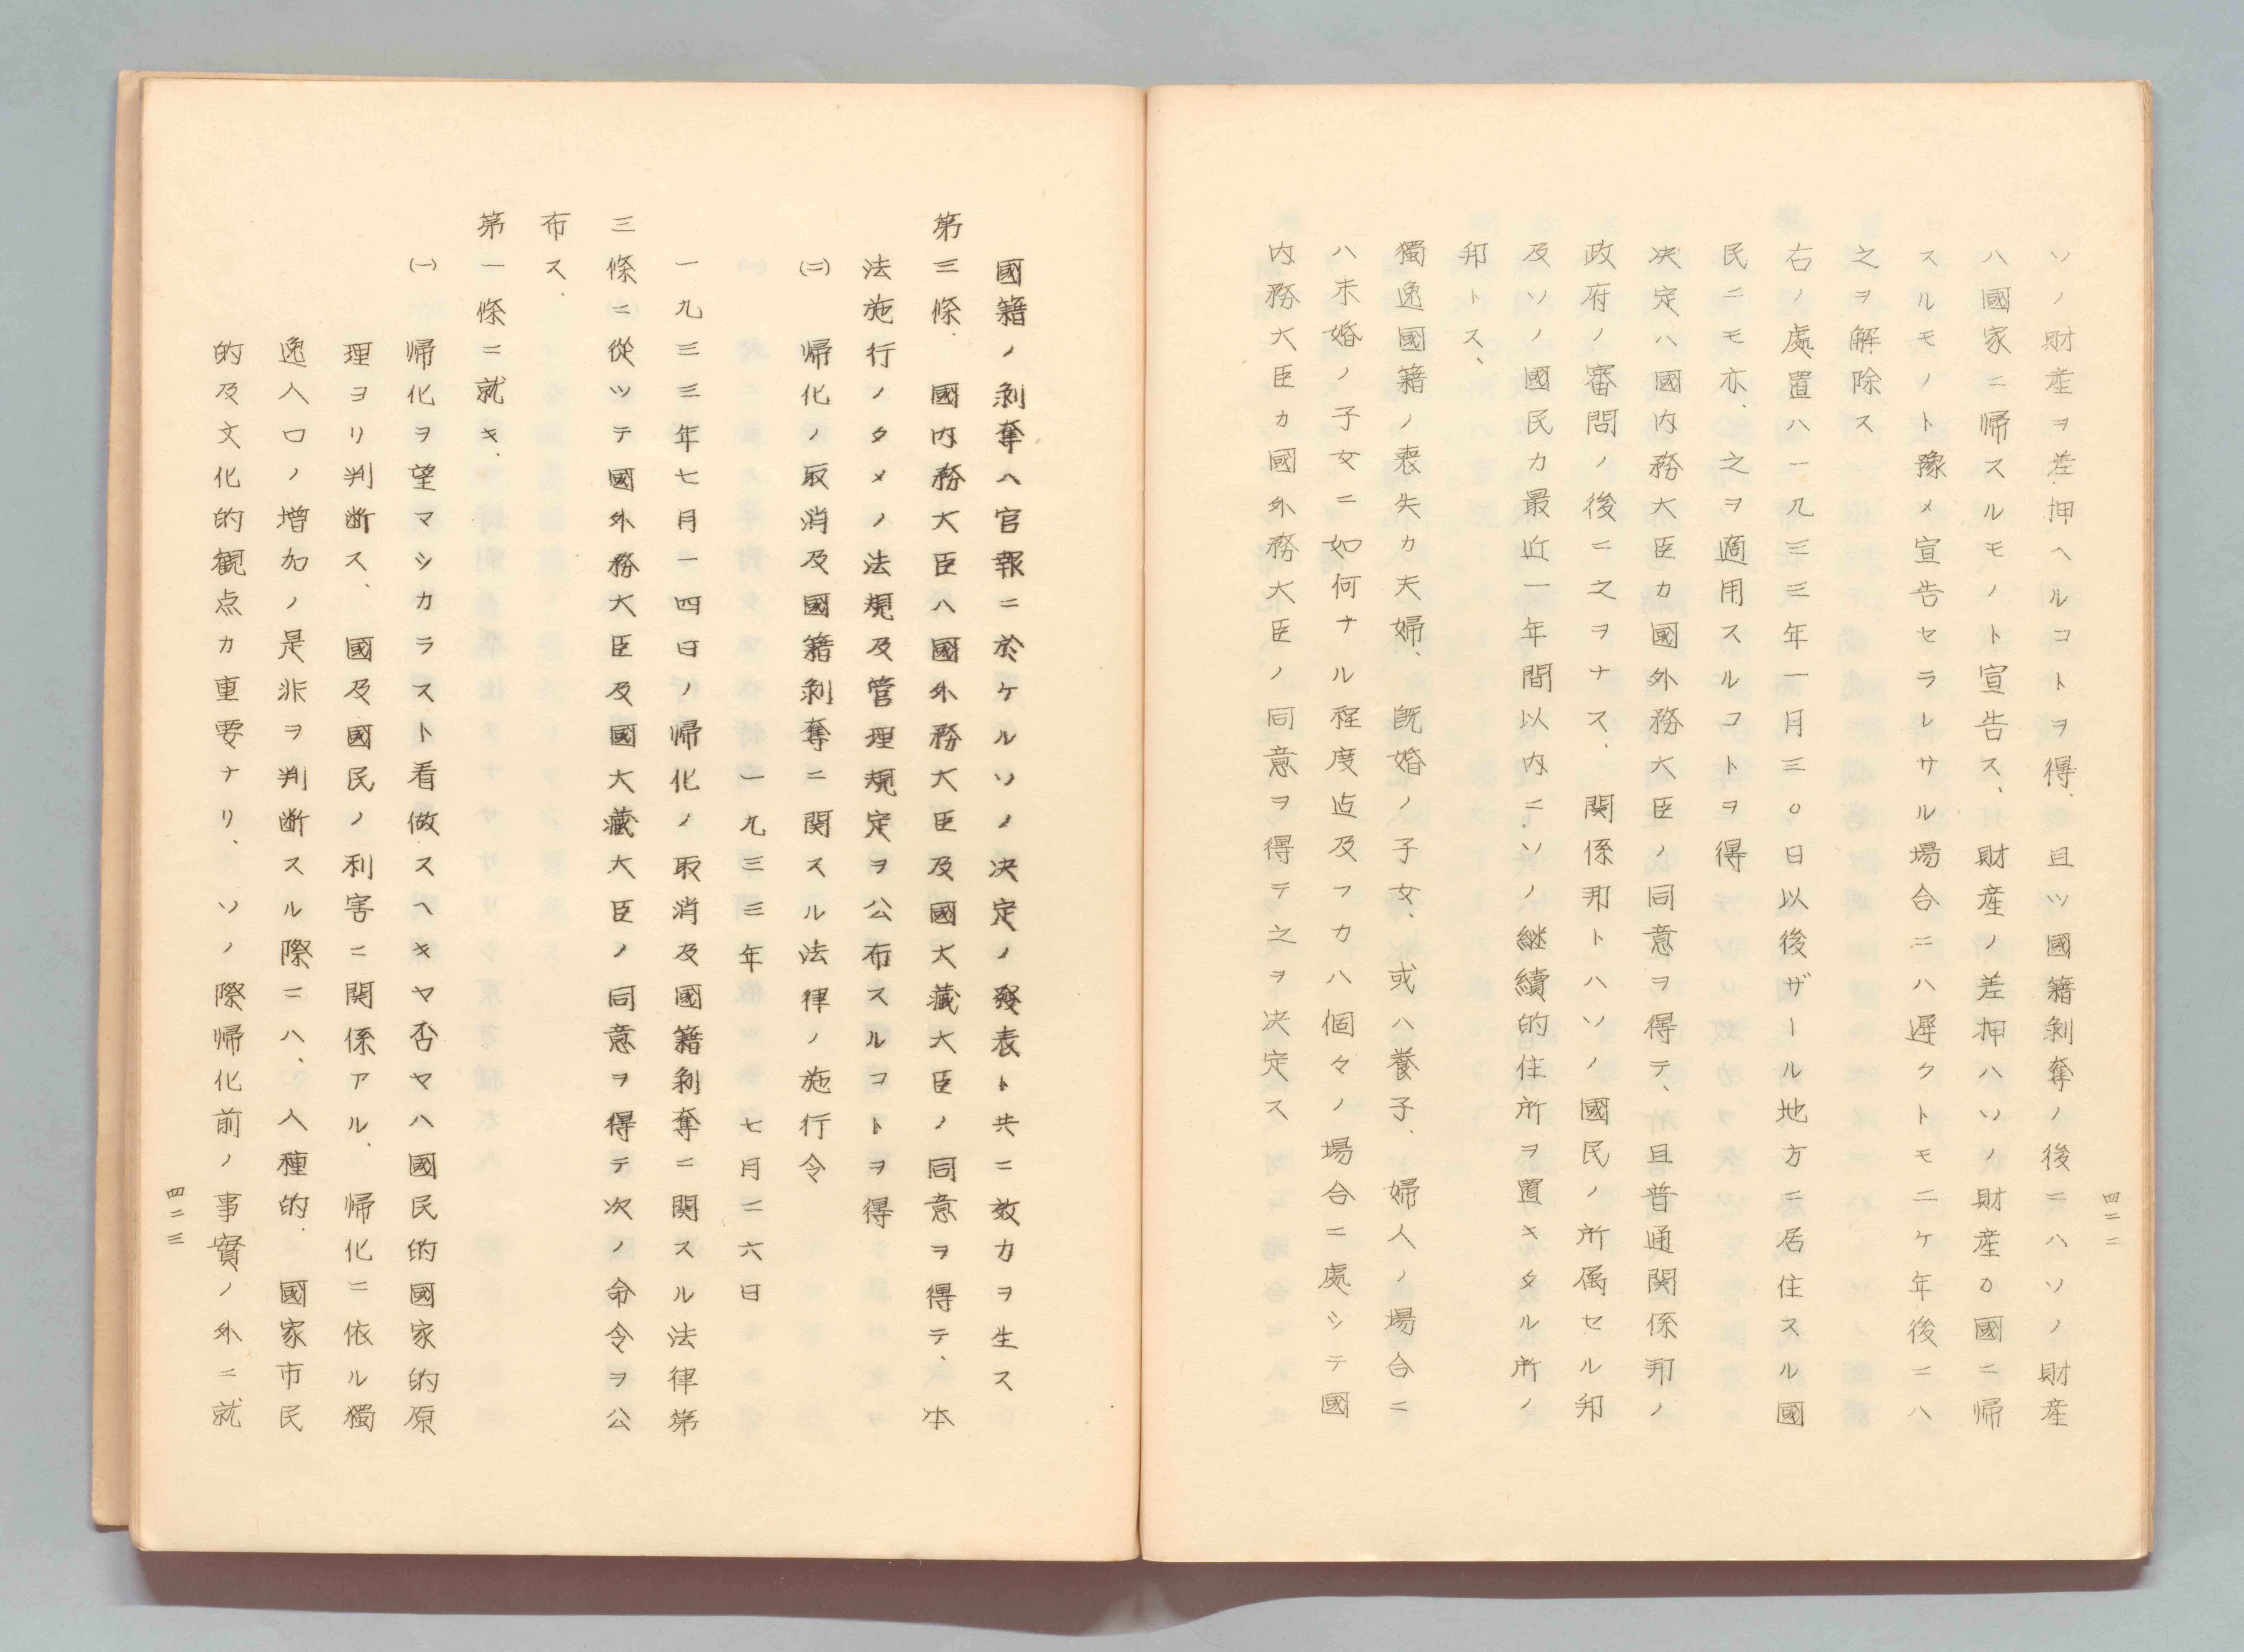 ソノ財産ヲ差押ヘルコトヲ得、且ツ國籍剝奪ノ後ニハソノ財産
ハ國家ニ帰スルモノト宣告ス、財産ノ差押ハソノ財産カ國ニ帰
スルモノト豫メ宣告セラレサル場合ニハ遲クトモ二ケ年後ニハ
之ヲ解除ス
右ノ處置ハ一九三三年一月三〇日以後ザール地方ニ居住スル國
民ニモ亦、之ヲ適用スルコトヲ得
決定ハ國内務大臣カ國外務大臣ノ同意ヲ得テ、且普通関係邦ノ
政府ノ審問ノ後ニ之ヲナス、関係邦トハソノ國民ノ所属セル邦
及ソノ國民カ最近一年間以内ニソノ継續的住所ヲ置キタル所ノ
邦トス、
獨逸國籍ノ喪失カ夫婦、既婚ノ子女、或ハ養子、婦人ノ場合ニ
ハ未婚ノ子女ニ如何ナル程度迄及フカハ個々ノ場合ニ處シテ國
内務大臣カ國外務大臣ノ同意ヲ得テ之ヲ決定ス
四二二
國籍ノ剝奪ハ官報ニ於ケルソノ決定ノ発表ト共ニ效力ヲ生ス
第三條、國内務大臣ハ國外務大臣及國大藏大臣ノ同意ヲ得テ、本
法施行ノタメノ法規及管理規定ヲ公布スルコトヲ得
(二) 帰化ノ取消及國籍剝奪ニ関スル法律ノ施行令
一九三三年七月二六日
一九三三年七月一四日ノ帰化ノ取消及國籍剝奪ニ関スル法律第
三條ニ從ツテ國外務大臣及國大藏大臣ノ同意ヲ得テ次ノ命令ヲ公
布ス、
第一條ニ就キ、
(一) 帰化ヲ望マシカラスト看做スヘキヤ否ヤハ國民的國家的原
理ヨリ判断ス、國及國民ノ利害ニ関係アル、帰化ニ依ル獨
逸人口ノ増加ノ是非ヲ判断スル際ニハ、人種的、國家市民
的及文化的観点カ重要ナリ、ソノ際帰化前ノ事實ノ外ニ就
四二三